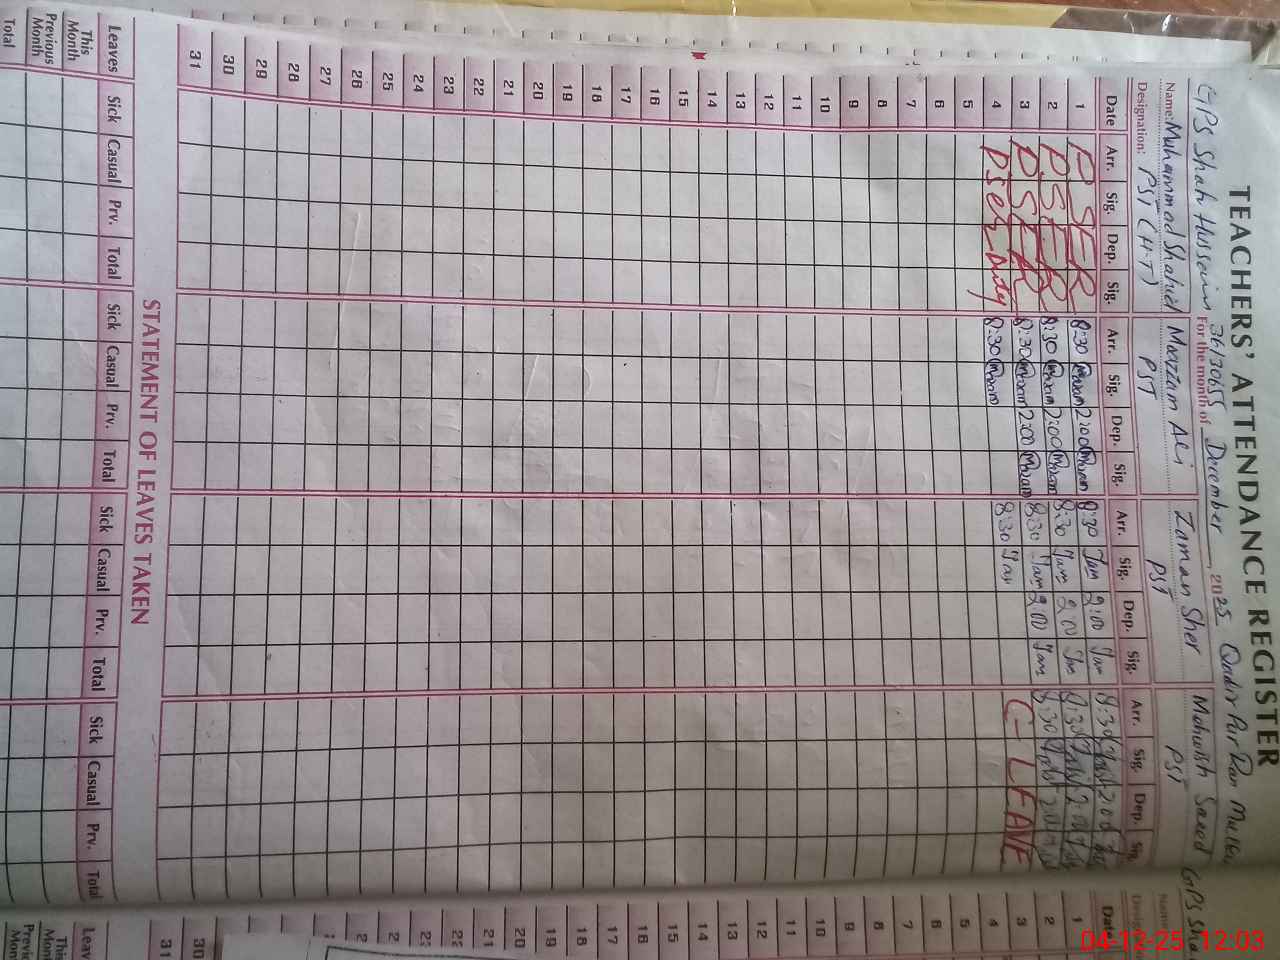 TEACHERS' ATTENDANCE REGISTER
GPS Shah Hussain 36130655 For the month of December, 2025 Qadir Pur Ran Multan
Name: Muhammad Shahid Moazam Ali Zaman Sher Mahwish Saeed
Designation: PST (H-T) PST PST PST
Date Arr. Sig. Dep. Sig. Arr. Sig. Dep. Sig. Arr. Sig. Dep. Sig. Arr. Sig. Dep. Sig.
1 P SER 8:30 2:00 8:30 2:00 8:30 2:00
2 P SER 8:30 2:00 8:30 2:00 8:30 2:00
3 P SER 8:30 2:00 8:30 2:00 8:30 2:00
4 PSER Duty 8:30 8:30 C-LEAVE
5
6
7
8
9
10
11
12
13
14
15
16
17
18
19
20
21
22
23
24
25
26
27
28
29
30
31
STATEMENT OF LEAVES TAKEN
Leaves Sick Casual Prv. Total Sick Casual Prv. Total Sick Casual Prv. Total Sick Casual Prv. Total
This Month
Previous Month
Total
GPS Sha
Name
Date
1
2
3
4
5
6
7
8
9
10
11
12
13
14
15
16
17
18
19
20
21
30
31
Leav
This
Mont
Previ
Mon
04-12-25 12:03